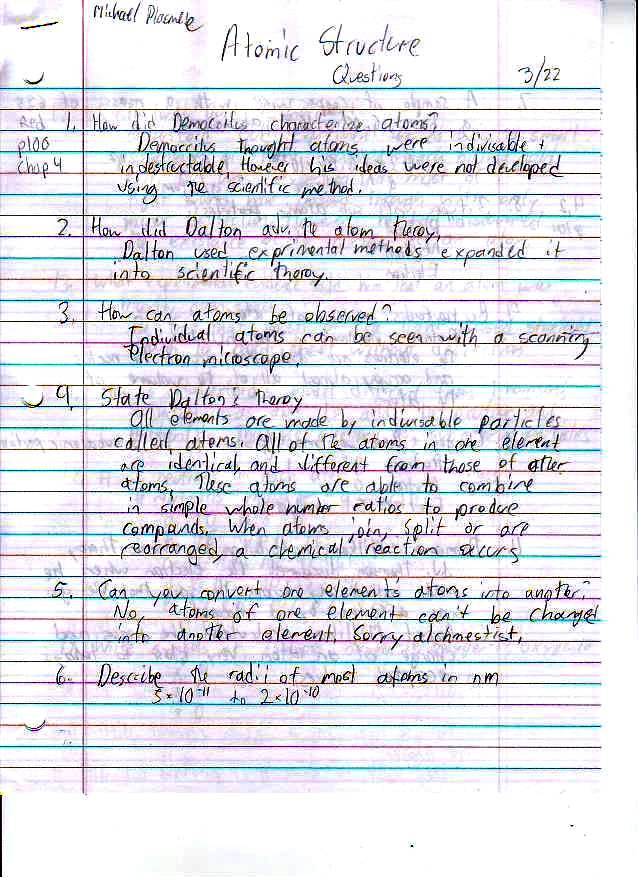 Michael
Atomic Structure
Questions 3/22
Red 1. How did Democritus characterize atoms?
p100 Democritus thought atoms were indivisable +
Chap 4 indestructable, However his ideas were not developed
using the scientific method.
2. How did Dalton adv. the atom theroy.
Dalton used exprimental methods expanded it
into scientific theroy.
3. How can atoms be observed?
Individual atoms can be seen with a scanning
electron microscope.
4. State Dalton's theroy
All elements are made by indivisable particles
called atoms. All of the atoms in one element
are identical, and different from those of other
atoms, These atoms are able to combine
in simple whole number ratios to produce
compands. When atoms join, split or are
rearranged, a chemical reaction occurs
5. Can you convert one element's atoms into another?
No, atoms of one element can't be changed
into another element, Sorry alchmestist,
6. Describe the radii of most atoms in nm
5×10⁻¹¹ to 2×10⁻¹⁰